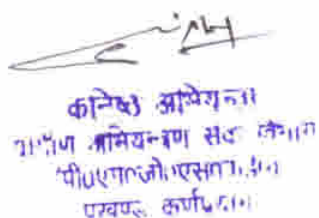 कनिष्ठ अभियन्ता
ग्रामीण अभियन्त्रण सेवा विभाग
पी०एम०जी०एस०वाई०
प्रखण्ड कर्णप्रयाग